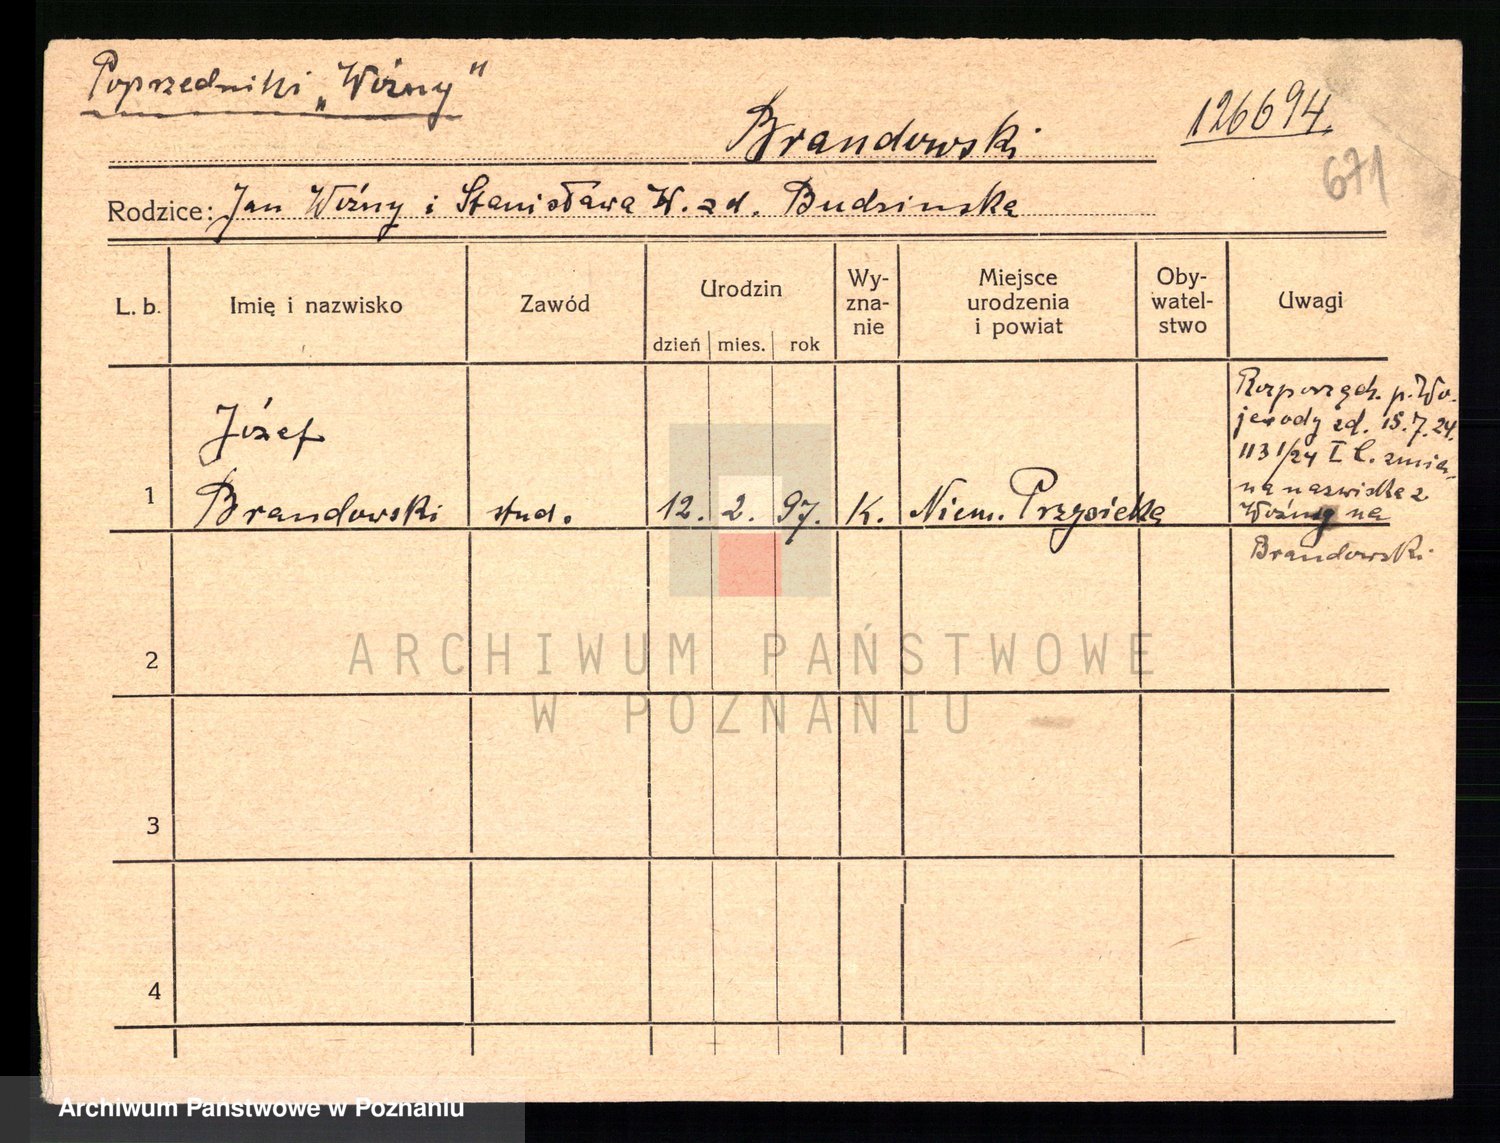 Poprzedniki „Woźny"
Brandowski
126694.
671
Rodzice: Jan Woźny i Stanisława W. zd. Budzinska
L. b.
Imię i nazwisko
Zawód
Urodzin
dzień mies. rok
Wy-
zna-
nie
Miejsce
urodzenia
i powiat
Oby-
watel-
stwo
Uwagi
1
Józef
Brandowski
stud.
12. 2. 97.
K.
Niem. Przysieka
Rozporządz. p. Wo-
jewody zd. 15.7.24.
1131/24 I C. zmia-
na nazwiska z
Woźny na
Brandowski
2
3
4
ARCHIWUM PAŃSTWOWE
W POZNANIU
Archiwum Państwowe w Poznaniu